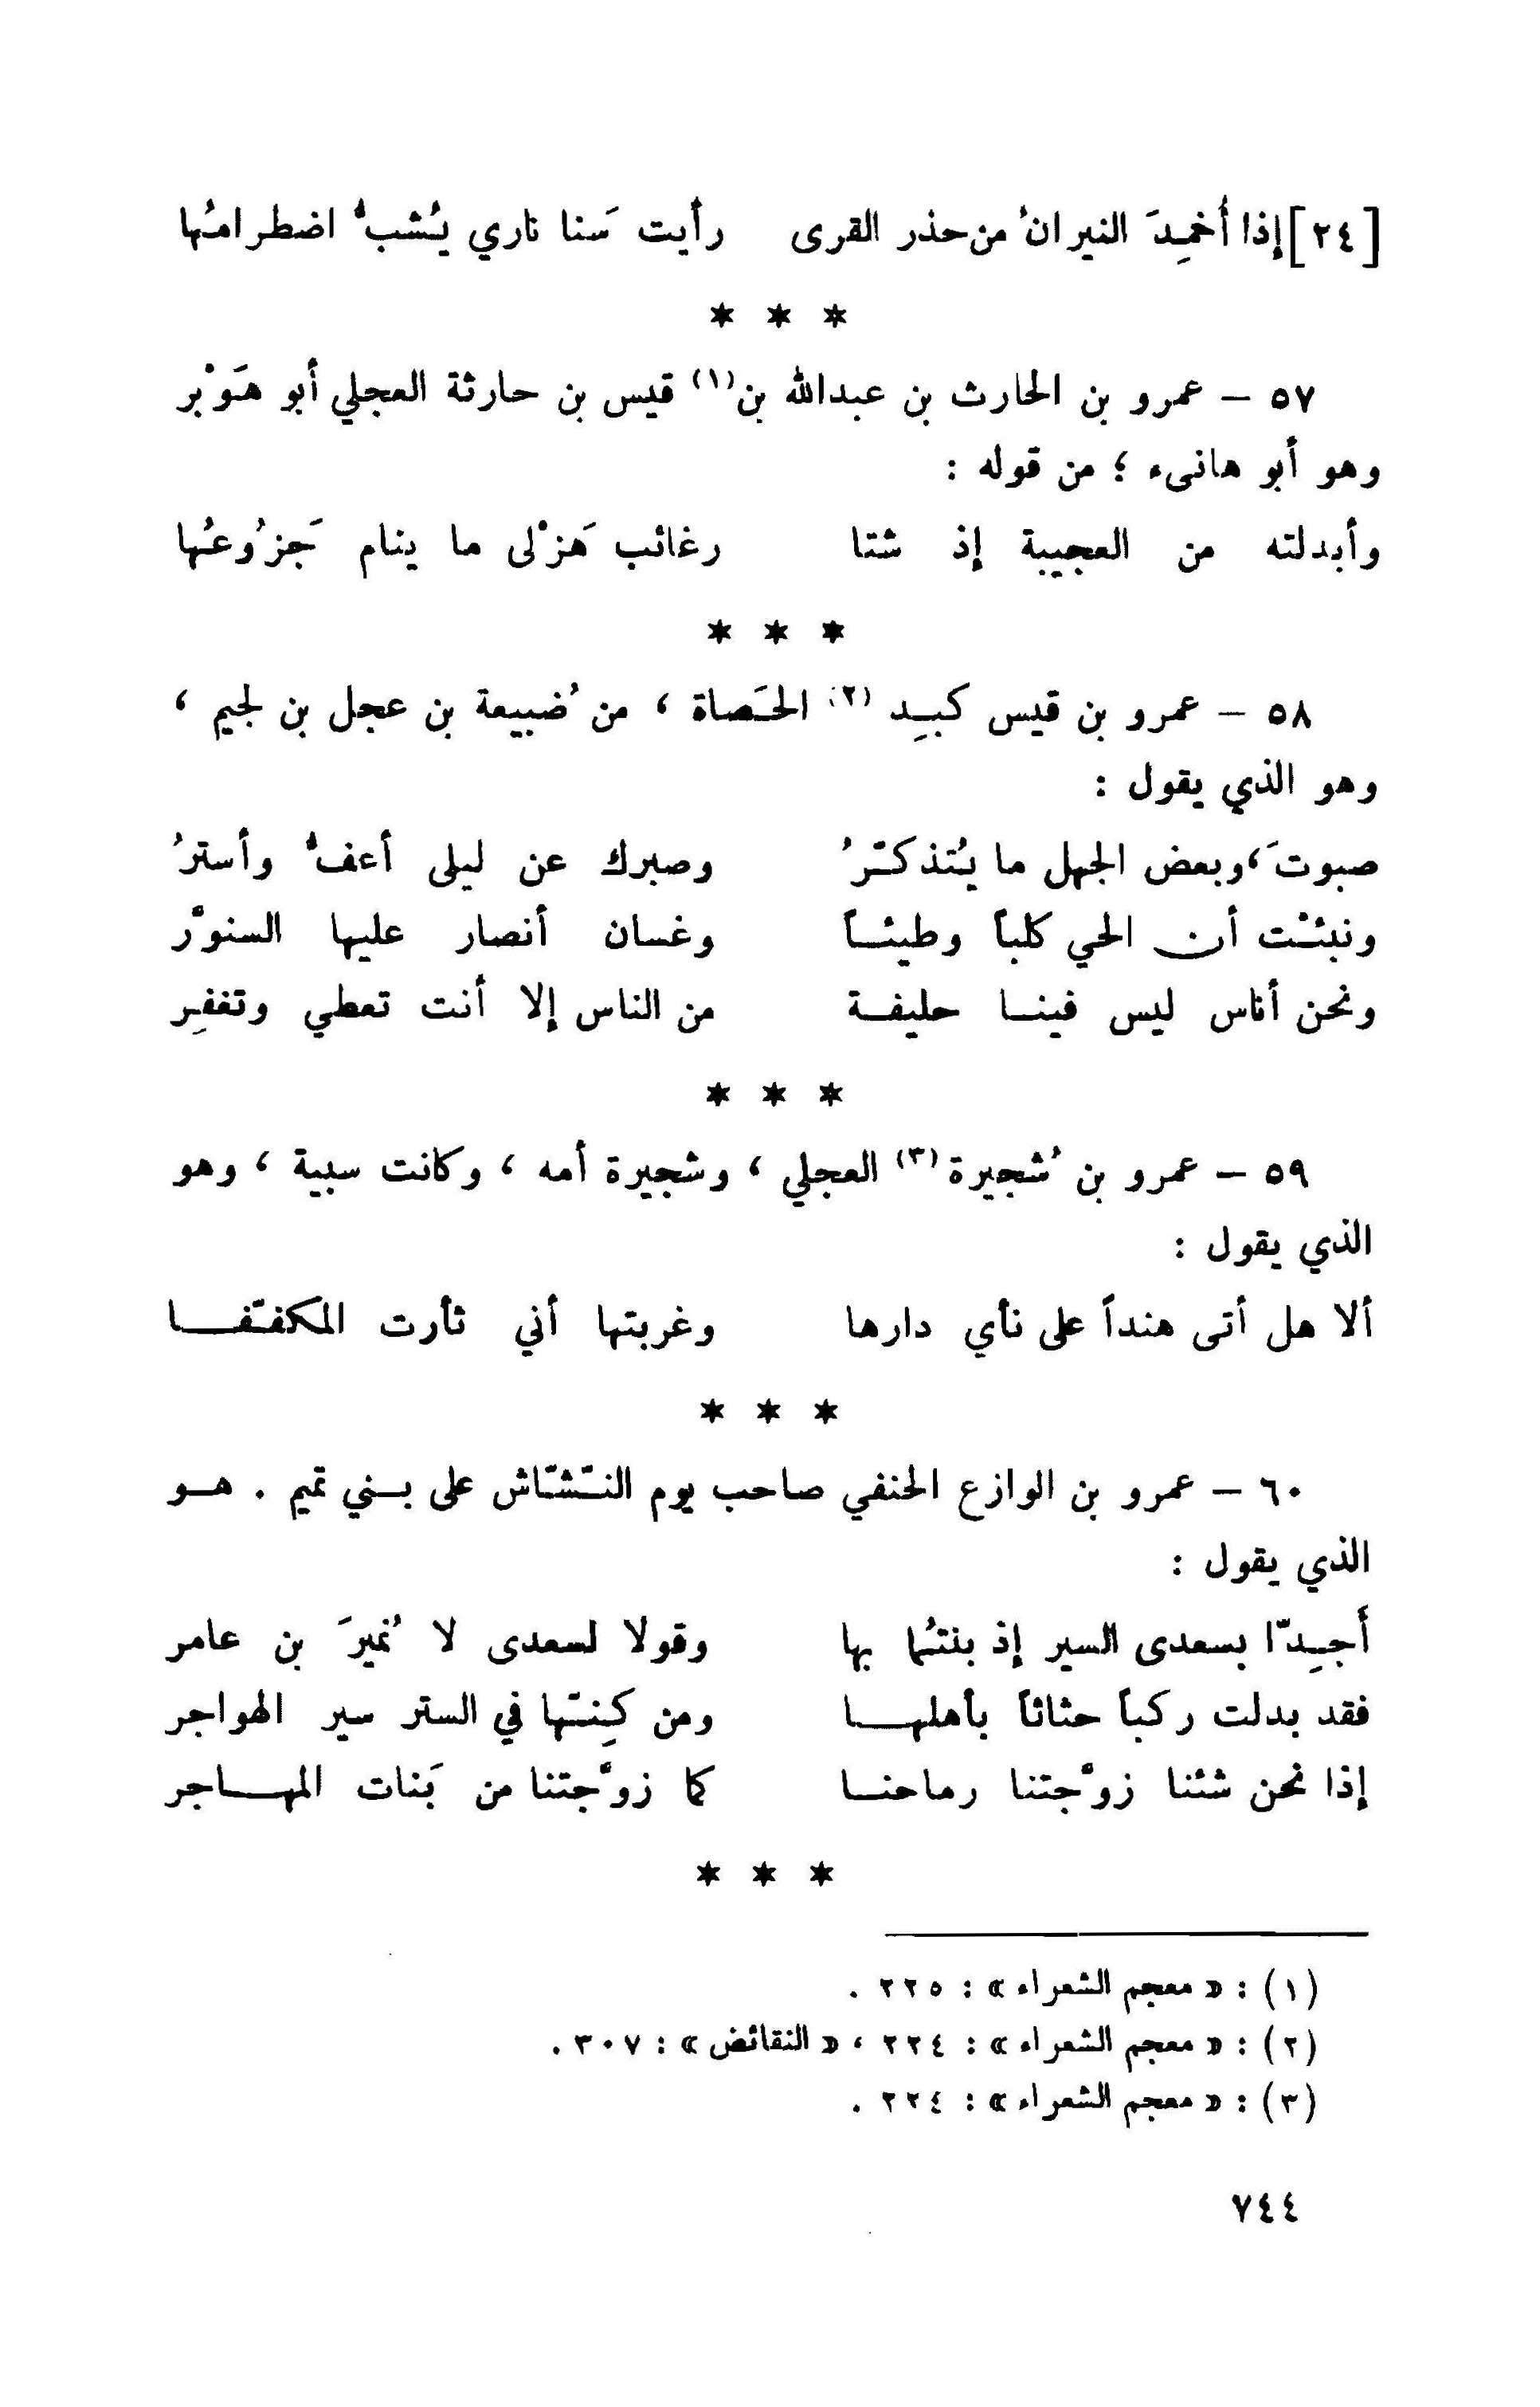 [٢٤] إذا أُخمِدَ النيرانُ من حذر القرى رأيت سَنا ناري يُشبُّ اضطرامُها
* * *
٥٧ – عمرو بن الحارث بن عبدالله بن(١) قيس بن حارثة العجلي أبو هَوْبر
وهو أبو هانىء ؛ من قوله :
وأبدلته من العجيبة إذ شتا رغائب هَزْلى ما ينام جَزُوعُها
* * *
٥٨ – عمرو بن قيس كبِد (٢) الحَصاة ، من ُضبيعة بن عجل بن لجيم ،
وهو الذي يقول :
صبوتَ، وبعض الجهل ما يُتذكّرُ وصبرك عن ليلى أعفُّ وأسترُ
ونبئْت أن الحي كلباً وطيئاً وغسان أنصار عليها السنوّر
ونحن أناس ليس فينا حليفة من الناس إلا أنت تعطي وتغفِر
* * *
٥٩ – عمرو بن ُشجيرة(٣) العجلي ، وشجيرة أمه ، وكانت سبية ، وهو
الذي يقول :
ألا هل أتى هنداً على نأي دارها وغربتها أني ثأرت المكفّفا
* * *
٦٠ – عمرو بن الوازع الحنفي صاحب يوم النّشّاش على بني تميم . هو
الذي يقول :
أَجِدّا بسعدى السير إذ بنتُما بها وقولا لسعدى لا ُنميرَ بن عامر
فقد بدلت ركباً حثاثاً بأهلها ومن كِنّها في الستر سير الهواجر
إذا نحن شئنا زوّجتنا رماحنا كما زوّجتنا من بَنات المهاجر
* * *
(١) : « معجم الشعراء » : ٢٢٥ .
(٢) : « معجم الشعراء » : ٢٢٤ ، « النقائض » : ٣٠٧ .
(٣) : « معجم الشعراء » : ٢٢٤ .
٧٤٤